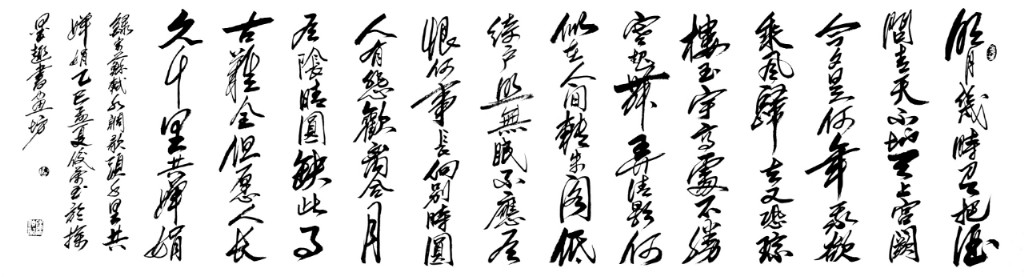 明月幾時有把酒
問青天不知天上宮闕
今夕是何年我欲
乘風歸去又恐瓊
樓玉宇高處不勝
寒起舞弄清影何
似在人間轉朱閣低
綺戶照無眠不應有
恨何事長向別時圓
人有悲歡離合月
有陰晴圓缺此事
古難全但愿人長
久千里共嬋娟
錄蘇軾水調歌頭千里共
嬋娟乙巳孟夏於
墨趣書畫坊